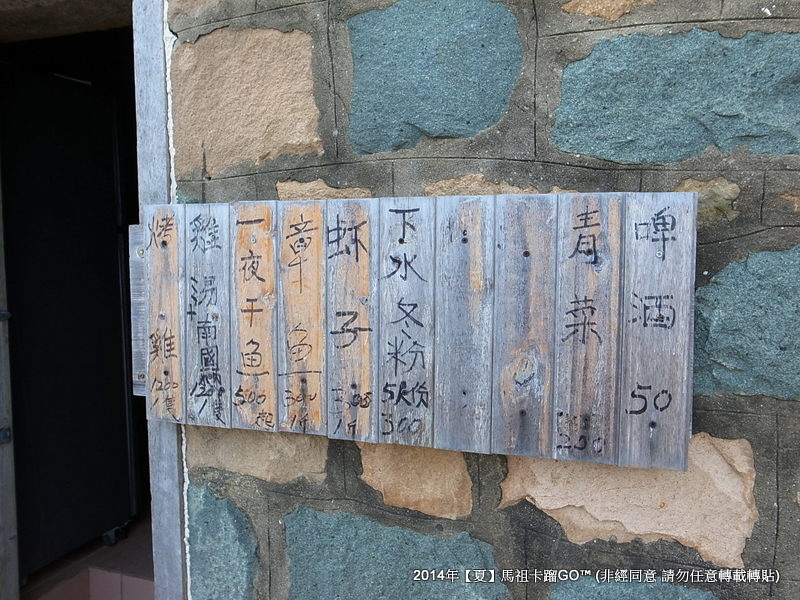 啤酒 50
青菜 200
下水冬粉 5K份 300
蚵子 200 1斤
章魚 300 1斤
一夜干魚 500起
雞湯
烤雞 1200 1隻
2014年【夏】馬祖卡蹓GO™ (非經同意 請勿任意轉載轉貼)